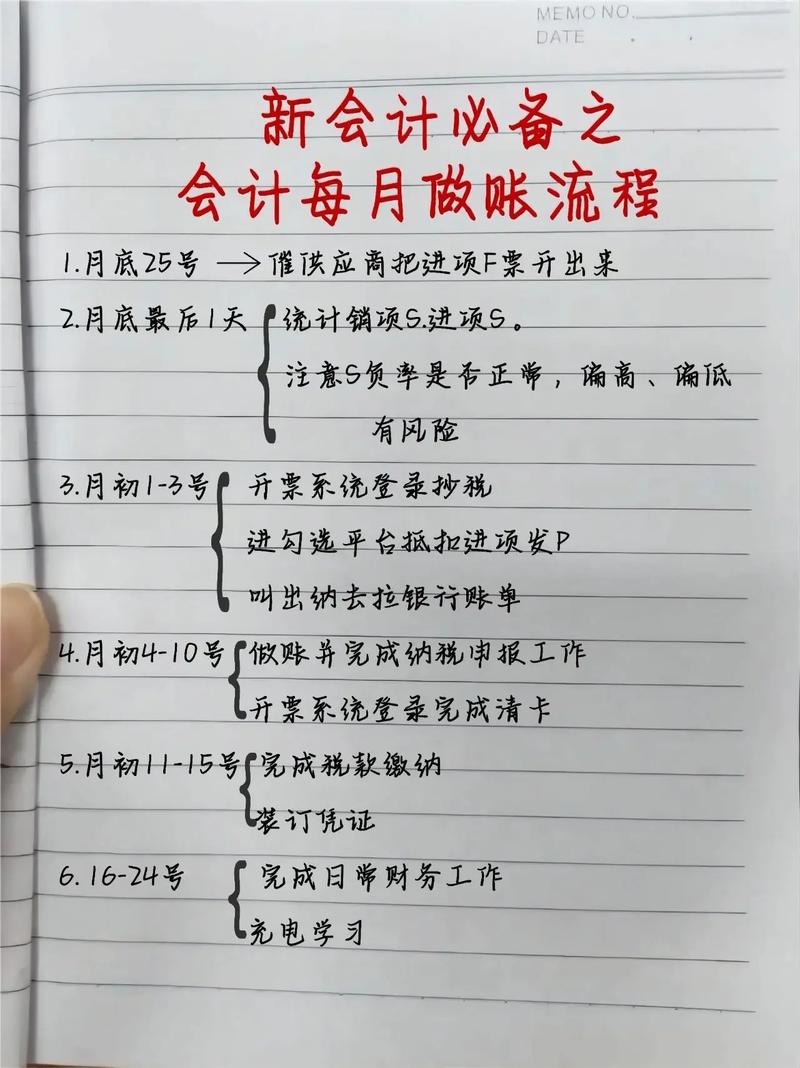 MEMO NO.
DATE
新会计必备之
会计每月做账流程
1.月底25号 → 催供应商把进项F票开出来
2.月底最后1天 统计销项S.进项S。
注意S负率是否正常，偏高、偏低
有风险
3.月初1-3号 开票系统登录抄税
进勾选平台抵扣进项发P
叫出纳去拉银行账单
4.月初4-10号 做账并完成纳税申报工作
开票系统登录完成清卡
5.月初11-15号 完成税款缴纳
装订凭证
6.16-24号 完成日常财务工作
充电学习